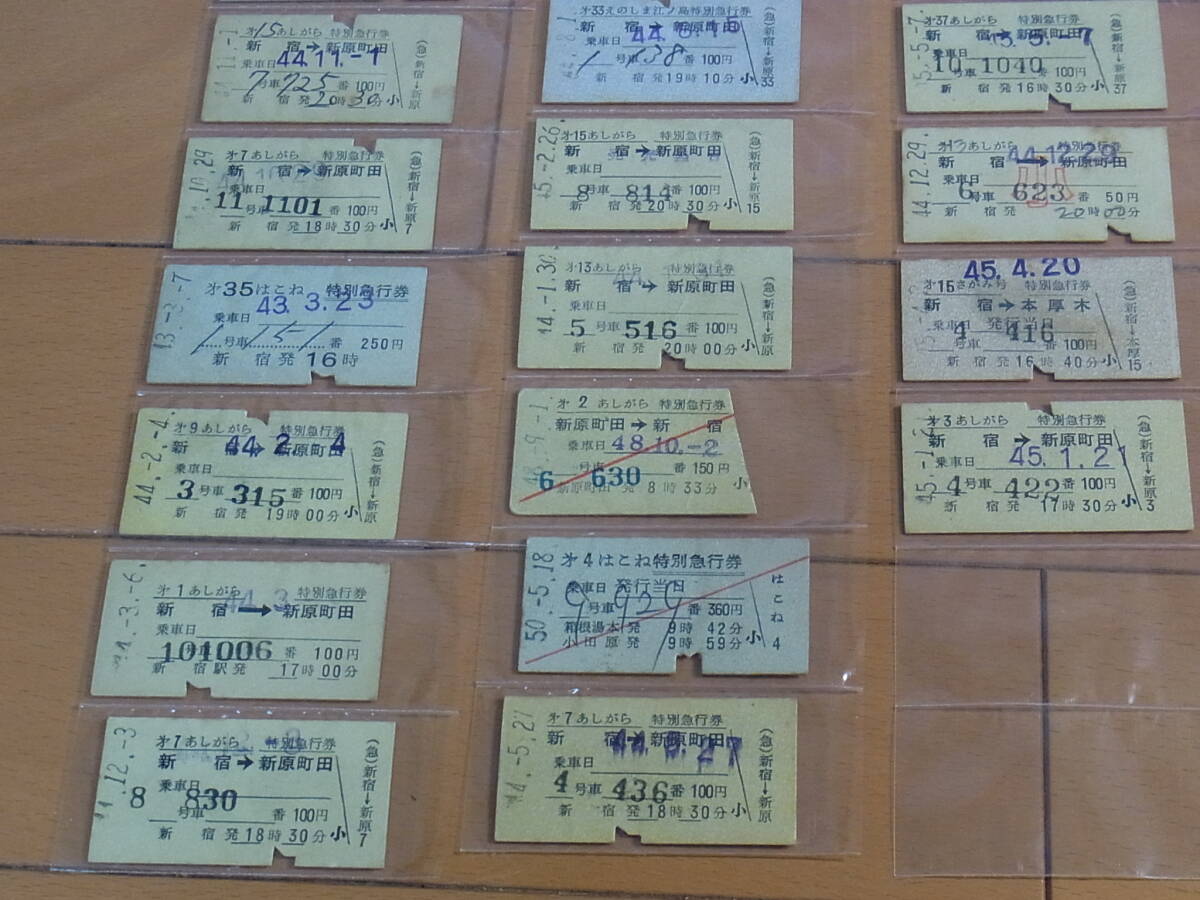 オ15あしがら 特別急行券
新 宿→新原町田
44.11.-1
乗車日
7号車 725番 100円
新 宿発20時30分 小
(急)新宿→新原
オ7あしがら 特別急行券
新 宿→新原町田
乗車日
11号車 1101番 100円
新 宿発18時30分 小
(急)新宿→新原
7
オ35はこね 特別急行券
43.3.23
乗車日
1号車 151番 250円
新 宿発16時
オ9あしがら 特別急行券
新 宿→新原町田
44.2.-4
乗車日
3号車 315番 100円
新 宿発19時00分 小
44.-2.-4.
(急)新宿→新原
オ1あしがら 特別急行券
新 宿→新原町田
乗車日
10号車 1006番 100円
新 宿駅発17時00分
オ7あしがら 特別急行券
新 宿→新原町田
乗車日
8号車 830番 100円
新 宿発18時30分 小
(急)新宿→新原
7
オ33えのしま江ノ島特別急行券
新 宿→新原町田
乗車日
1号車 138番 100円
新 宿発19時10分 小
33
オ15あしがら 特別急行券
新 宿→新原町田
乗車日
8号車 814番 100円
新 宿発20時30分 小
45.-2.26.
(急)新宿→新原
15
オ13あしがら 特別急行券
新 宿→新原町田
乗車日
5号車 516番 100円
新 宿発20時00分 小
44.-1.30.
(急)新宿→新原
オ2あしがら 特別急行券
新原町田→新 宿
乗車日 48.10.-2
6号車 630番 150円
新原町田 発 8時33分 小
オ4はこね特別急行券
乗車日 発行当日
9号車 929番 360円
箱根湯本発 9時42分
小田原発 9時59分 小
50.-5.18.
はこね
4
オ7あしがら 特別急行券
新 宿→新原町田
乗車日
4号車 436番 100円
新 宿発18時30分 小
44.-5.27
(急)新宿→新原
オ37あしがら 特別急行券
新 宿→新原町田
乗車日
10号車 1040番 100円
新 宿発16時30分 小
45.-5.-7.
(急)新宿→新原
37
オ13あしがら 特別急行券
新 宿→新原町田
44.12.29
乗車日
6号車 623番 50円
新 宿発20時00分
小
44.12.29.
(急)新宿→新原
45.4.20
オ15さがみ号 特別急行券
新 宿→本厚木
乗車日 発行当日
4号車 416番 100円
新 宿発16時40分 小
(急)新宿→本厚
15
オ3あしがら 特別急行券
新 宿→新原町田
乗車日 45.1.21
4号車 422番 100円
新 宿発17時30分 小
(急)新宿→新原
3